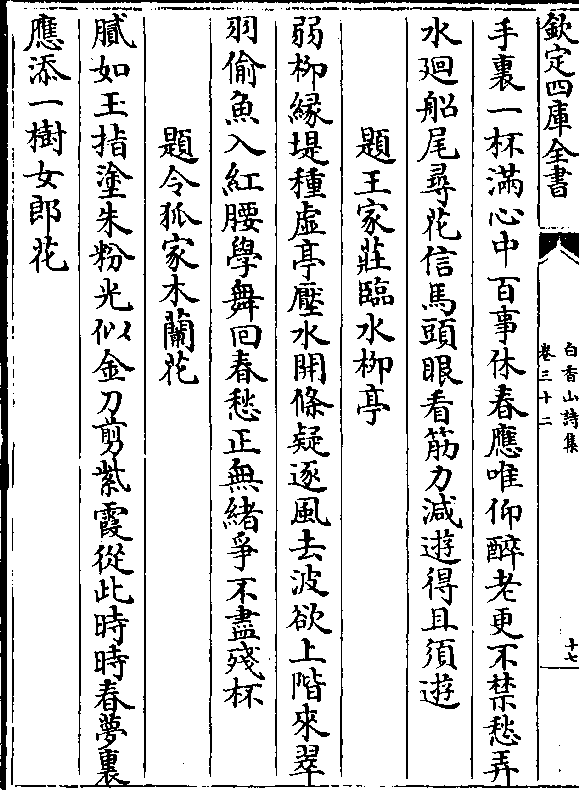 欽定四庫全書
白香山詩集
卷三十二
十七
手裏一杯滿心中百事休春應唯仰醉老更不禁愁弄
水廻船尾尋花信馬頭眼看筋力減遊得且須遊
題王家莊臨水柳亭
弱柳縁堤種虚亭壓水開條疑逐風去波欲上階來翠
羽偷魚入紅腰學舞回春愁正無緒爭不盡殘杯
題令狐家木蘭花
膩如玉指塗朱粉光似金刀剪紫霞從此時時春夢裏
應添一樹女郎花